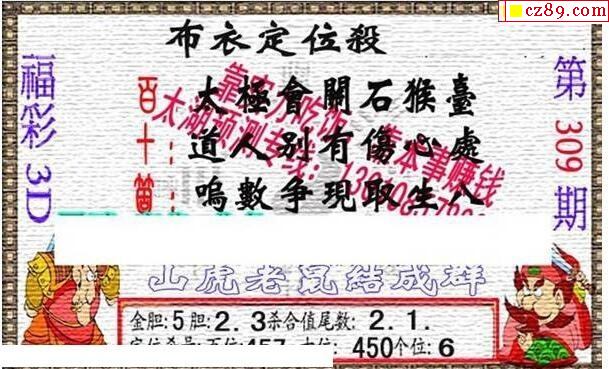 cz89.com
布衣定位殺
福彩3D
第309期
百: 太極會開石猴臺
十: 道人别有傷心處
個: 鳴數争現取生八
靠实力吃饭 靠本事赚钱
太湖预测专线:
山虎老鼠結成群
金胆:5胆:2.3杀合值尾数:2.1.
450个位:6